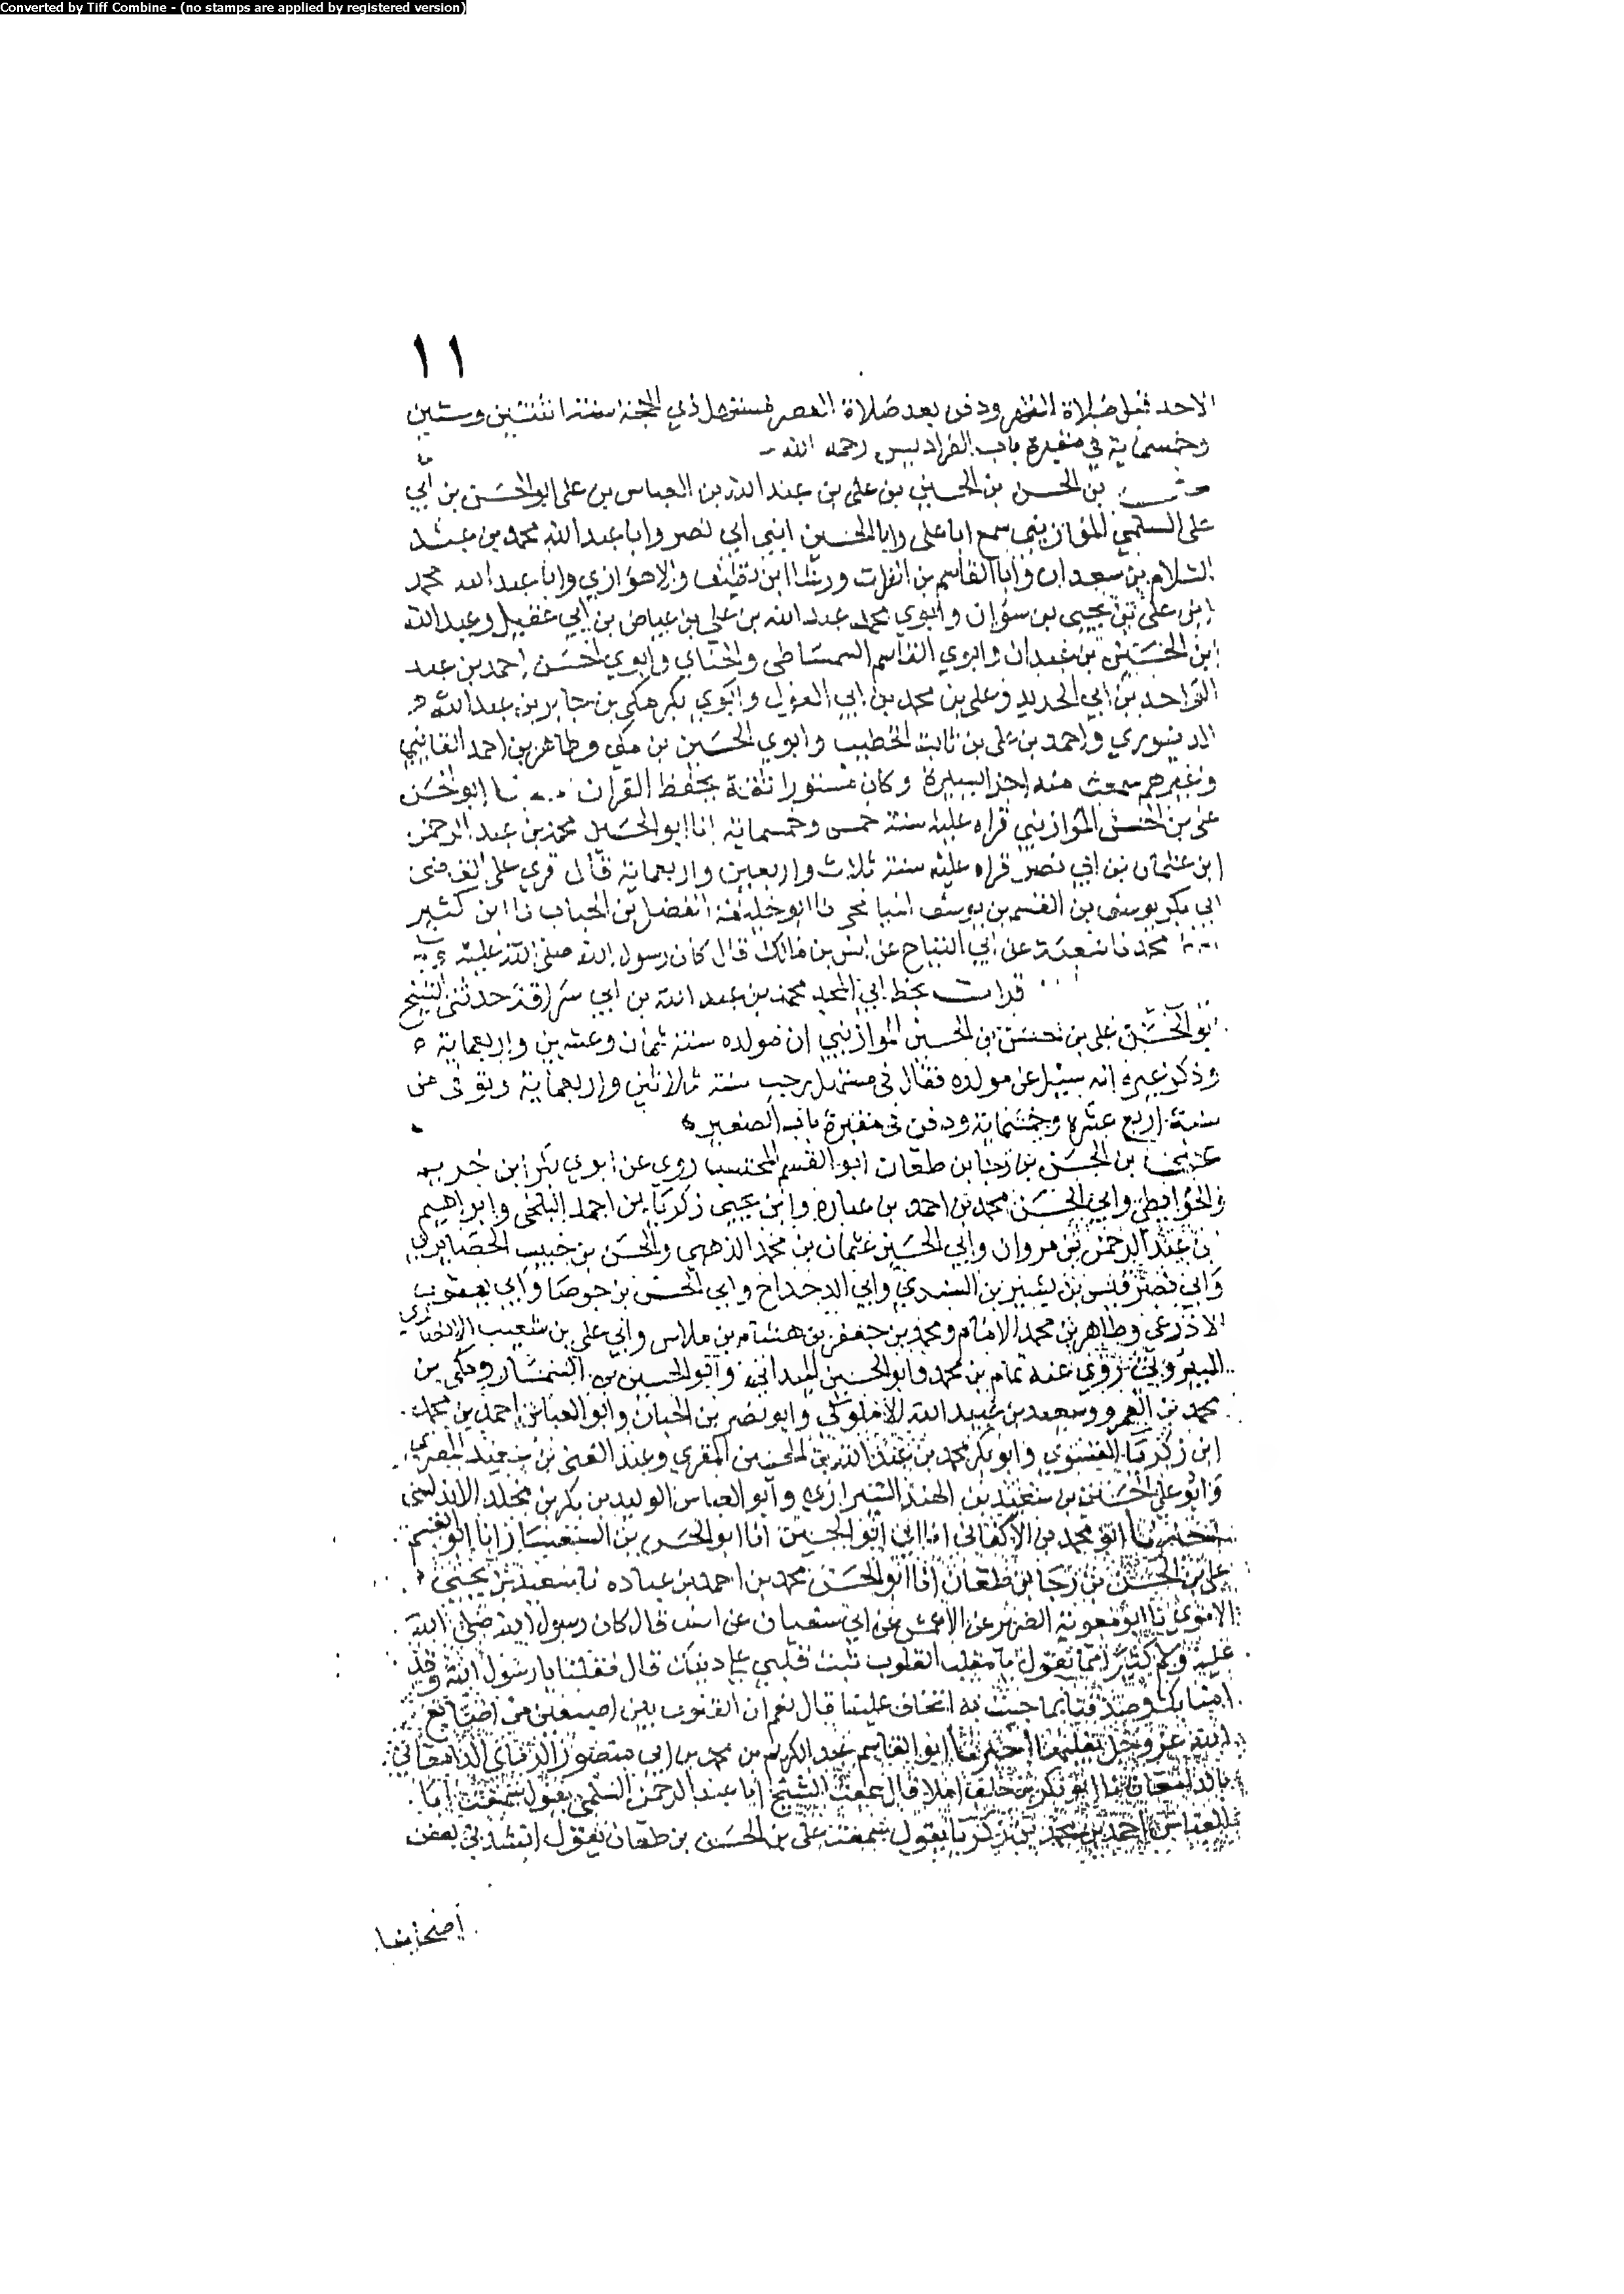 Converted by Tiff Combine - (no stamps are applied by registered version)
١١
الاحد قبل صلاة الظهر ودفن بعد صلاة العصر مستهل ذي الحجة سنة اثنتين وستين
وخمسماية في مقبرة باب الفراديس رحمه الله
بن الحسن بن الحسين بن علي بن عبد الله بن العباس بن علي ابو الحسن بن ابي
علي السلمي الموازيني سمع ابا علي وابا الحسين ابني ابي نصر وابا عبد الله محمد بن عبد
السلام بن سعدان وابا القاسم بن الفرات ورشا ابن نظيف والاهوازي وابا عبد الله محمد
ابن علي بن يحيى بن سلوان وابوي محمد عبد الله بن علي بن عياض بن ابي عقيل وعبد الله
ابن الحسين بن عبدان وابوي القاسم السمساطي والحناي وابوي الحسن احمد بن عبد
الواحد بن ابي الحديد وعلي بن محمد بن ابي الهول وابوي بكر مكي بن جابر بن عبد الله
الدينوري واحمد بن علي بن ثابت الخطيب وابوي الحسين بن مكي وطاهر بن احمد القايني
وغيرهم سمعت منه اجزا يسيرة وكان مستورا ثقة يحفظ القران نا ابو الحسن
علي بن الحسن الموازيني قراه عليه سنة خمس وخمسماية انا ابو الحسين محمد بن عبد الرحمن
ابن عثمان بن ابي نصر قراه عليه سنة ثلاث واربعين واربعماية قال قري على القاضي
ابي بكر يوسف بن القسم بن يوسف الميانجي نا ابو خليفة الفضل بن الحباب نا ابن كثير
محمد نا شعبة عن ابي التياح عن انس بن مالك قال كان رسول الله صلى الله عليه
قرات بخط ابي المجد محمد بن عبد الله بن ابي سراقة حدثني الشيخ
ابو الحسن علي بن الحسن بن الحسين الموازيني ان مولده سنة ثمان وعشرين واربعماية ه
وذكر غيره انه سيل عن مولده فقال في مستهل رجب سنة ثلاثين واربعماية وتوفى من
سنة اربع عشرة وخمسماية ودفن في مقبرة باب الصغير ه
علي بن الحسن بن رجا بن طعان ابو القسم المحتسب روى عن ابوي بكر ابن خريم
والخرايطي وابي الحسن محمد بن احمد بن عمارة وابن يحيى زكريا بن احمد البلخي وابراهيم
بن عبد الرحمن بن مروان وابي الحسين عثمان بن محمد الذهبي والحسن بن حبيب الحصايري
وابي نصر قيس بن بشير بن السندي وابي الدحداح وابي الحسن بن جوصا وابي يعقوب
الاذرعي وطاهر بن محمد الامام ومحمد بن جعفر بن هشام بن ملاس وابي علي بن شعيب الانصاري
البيروتي روى عنه تمام بن محمد وابو الحسين الميداني وابو الحسن بن السمسار ومكي بن
محمد بن الغمر وسعيد بن عبيد الله الاملوكي وابو نصر بن الجبان وابو العباس احمد بن محمد
ابن زكريا الفسوي وابو بكر محمد بن عبد الله بن الحسن المقري وعبد الغني بن سعيد المصري
وابو علي الحسن بن سعيد بن الهند الشيرازي وابو العباس الوليد بن بكر بن مخلد الاندلسي
اخبرنا ابو محمد بن الاكفاني انا ابو الحسن بن السمسار انا ابو القسم
علي بن الحسن بن رجا بن طعان انا ابو الحسن محمد بن احمد بن عمارة نا سعيد بن يحيى
الاموي نا ابو معوية الضرير عن الاعمش عن ابي سفيان عن انس قال كان رسول الله صلى الله
عليه وسلم كثيرا مما يقول يا مقلب القلوب ثبت قلبي على دينك قال فقلنا يا رسول الله وقد
امنا بك وصدقنا بما جيت به اتخاف علينا قال نعم ان القلوب بين اصبعين من اصابع
الله عز وجل يقلبها اخبرنا ابو القاسم عبد الكريم بن محمد بن ابي منصور الدامغاني
بالدامغان نا ابو بكر بن خلف املا قال سمعت الشيخ ابا عبد الرحمن السلمي يقول سمعت ابا
العباس احمد بن محمد بن زكريا يقول سمعت علي بن الحسن بن طعان يقول انشدني بعض
اصحابنا